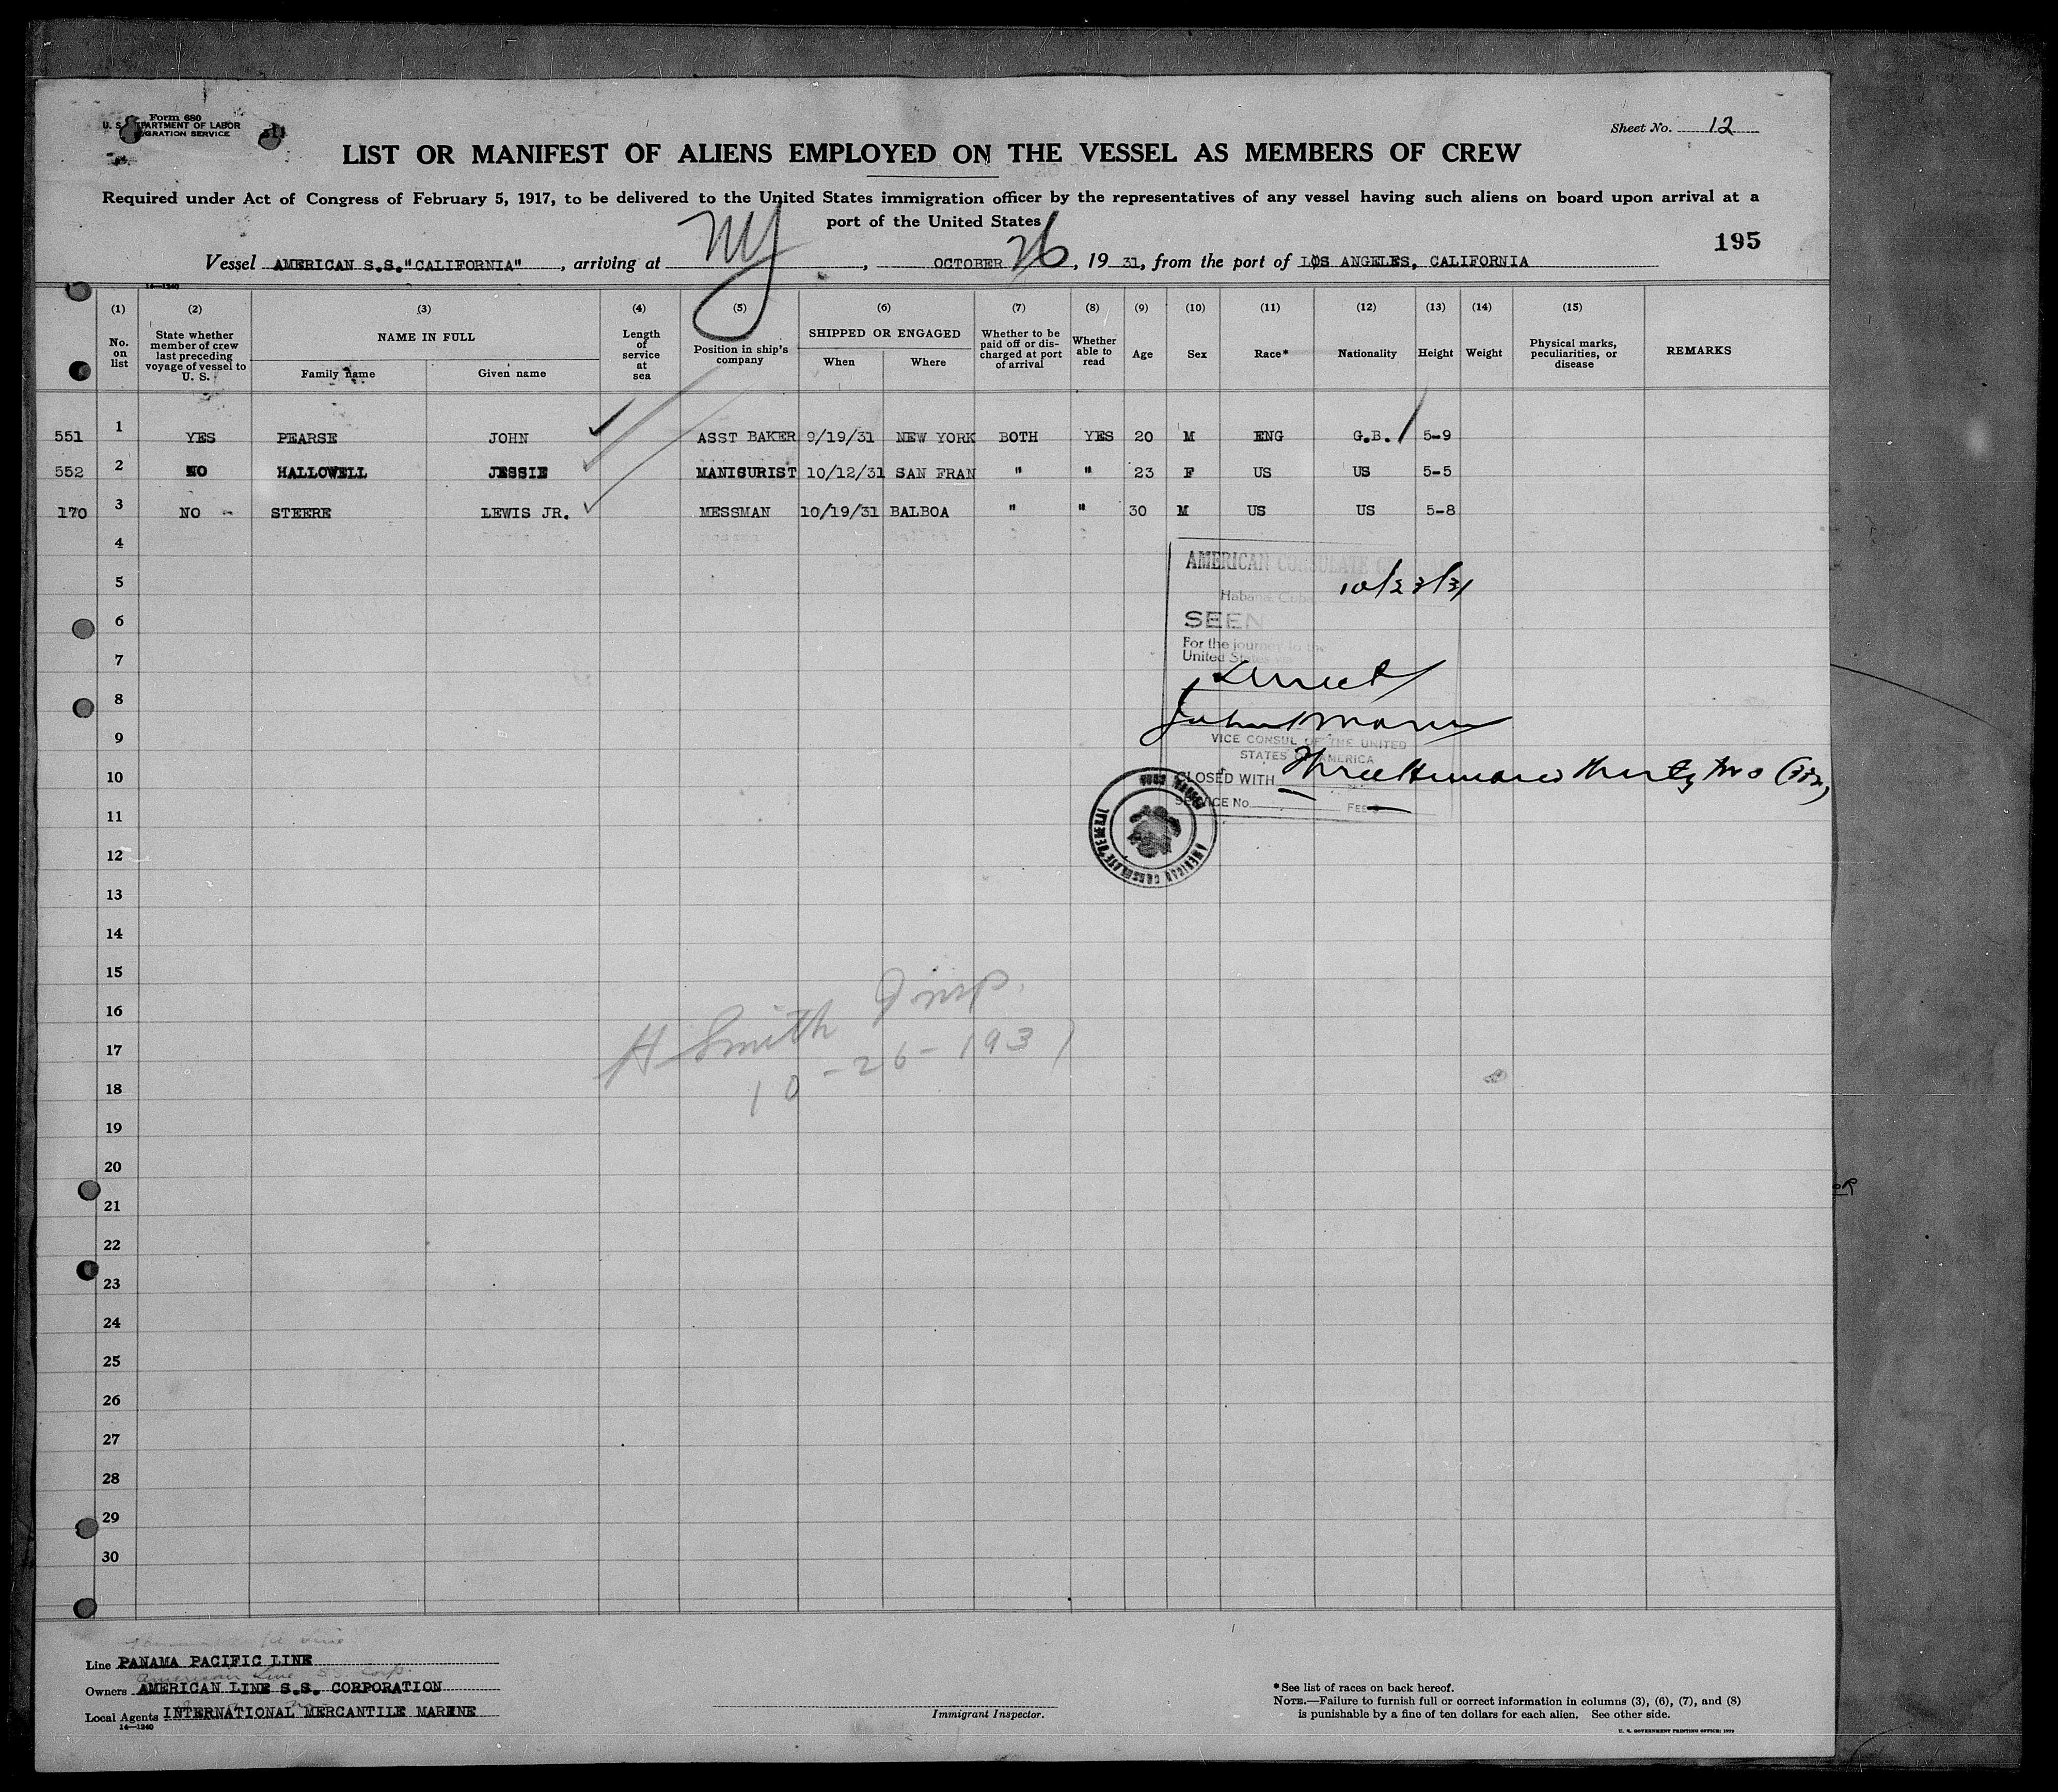 Form 680
U. S. DEPARTMENT OF LABOR
IMMIGRATION SERVICE
Sheet No. 12
LIST OR MANIFEST OF ALIENS EMPLOYED ON THE VESSEL AS MEMBERS OF CREW
Required under Act of Congress of February 5, 1917, to be delivered to the United States immigration officer by the representatives of any vessel having such aliens on board upon arrival at a
port of the United States
195
Vessel AMERICAN S.S."CALIFORNIA", arriving at NY, OCTOBER 26, 19 31, from the port of LOS ANGELES, CALIFORNIA
14—1240
(1) No. on list
(2) State whether member of crew last preceding voyage of vessel to U. S.
(3) NAME IN FULL
Family name Given name
(4) Length of service at sea
(5) Position in ship's company
(6) SHIPPED OR ENGAGED
When Where
(7) Whether to be paid off or discharged at port of arrival
(8) Whether able to read
(9) Age
(10) Sex
(11) Race*
(12) Nationality
(13) Height
(14) Weight
(15) Physical marks, peculiarities, or disease
REMARKS
551 1 YES PEARSE JOHN ASST BAKER 9/19/31 NEW YORK BOTH YES 20 M ENG G.B. 5-9
552 2 NO HALLOWELL JESSIE MANICURIST 10/12/31 SAN FRAN " " 23 F US US 5-5
170 3 NO - STEERE LEWIS JR. MESSMAN 10/19/31 BALBOA " " 30 M US US 5-8
4
AMERICAN CONSULATE
5
10/23/31
Habana, Cuba
6
SEEN
For the journey to the
7
United States via
Direct
8
9
VICE CONSUL OF THE UNITED
STATES OF AMERICA
10
CLOSED WITH Three Hundred thirty two (332)
SERVICE No. FEE $
11
AMERICAN CONSULATE GENERAL
12
13
14
15
16
H Smith Insp.
17
10-26-1931
18
19
20
21
22
23
24
25
26
27
28
29
30
Line PANAMA PACIFIC LINE
American Line SS. Corp.
Owners AMERICAN LINE S.S. CORPORATION
Local Agents INTERNATIONAL MERCANTILE MARINE
14—1240
Immigrant Inspector.
*See list of races on back hereof.
NOTE.—Failure to furnish full or correct information in columns (3), (6), (7), and (8)
is punishable by a fine of ten dollars for each alien. See other side.